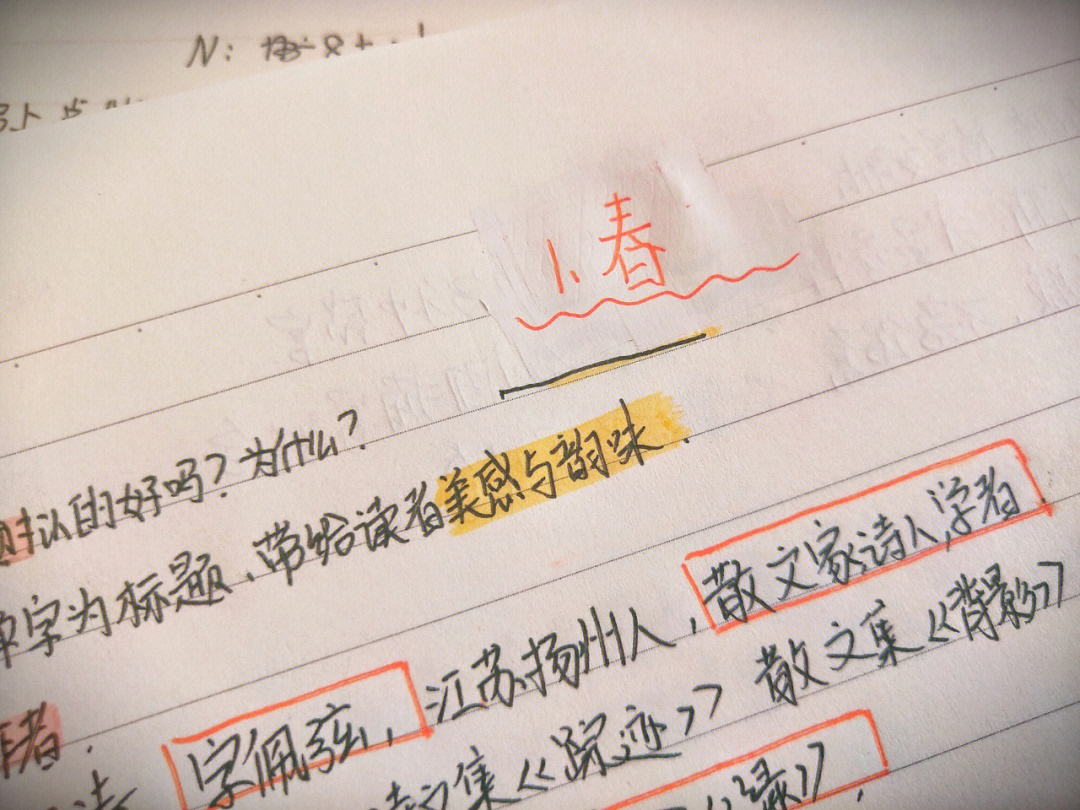 N:
1. 春
认的好吗？为什么？
单字为标题，带给读者美感与韵味.
者.
字佩弦, 江苏扬州人, 散文家诗人,学者
文集《踪迹》 散文集《背影》